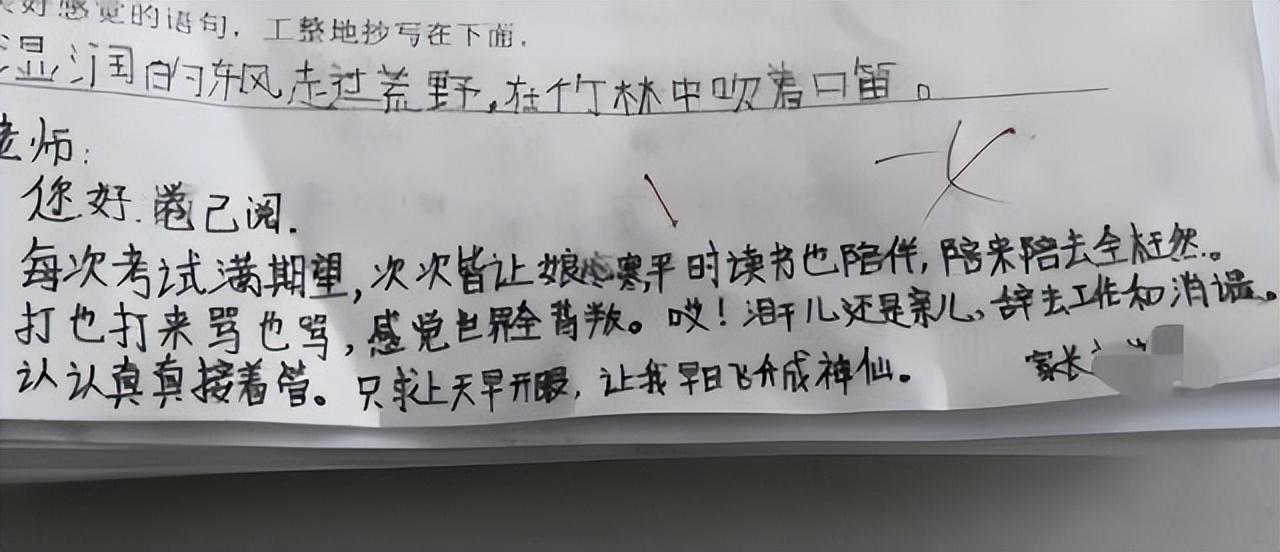 好感觉的语句，工整地抄写在下面.
湿润的东风走过荒野,在竹林中吹着口笛。
老师:
您好.卷已阅.
每次考试满期望,次次皆让娘心寒,平时读书也陪伴,陪来陪去全枉然。
打也打来骂也骂,感觉世界全背叛。哎!泪干儿还是亲儿,辞去工作和消遣。
认认真真接着管。只求上天早开眼,让我早日飞升成神仙。
家长